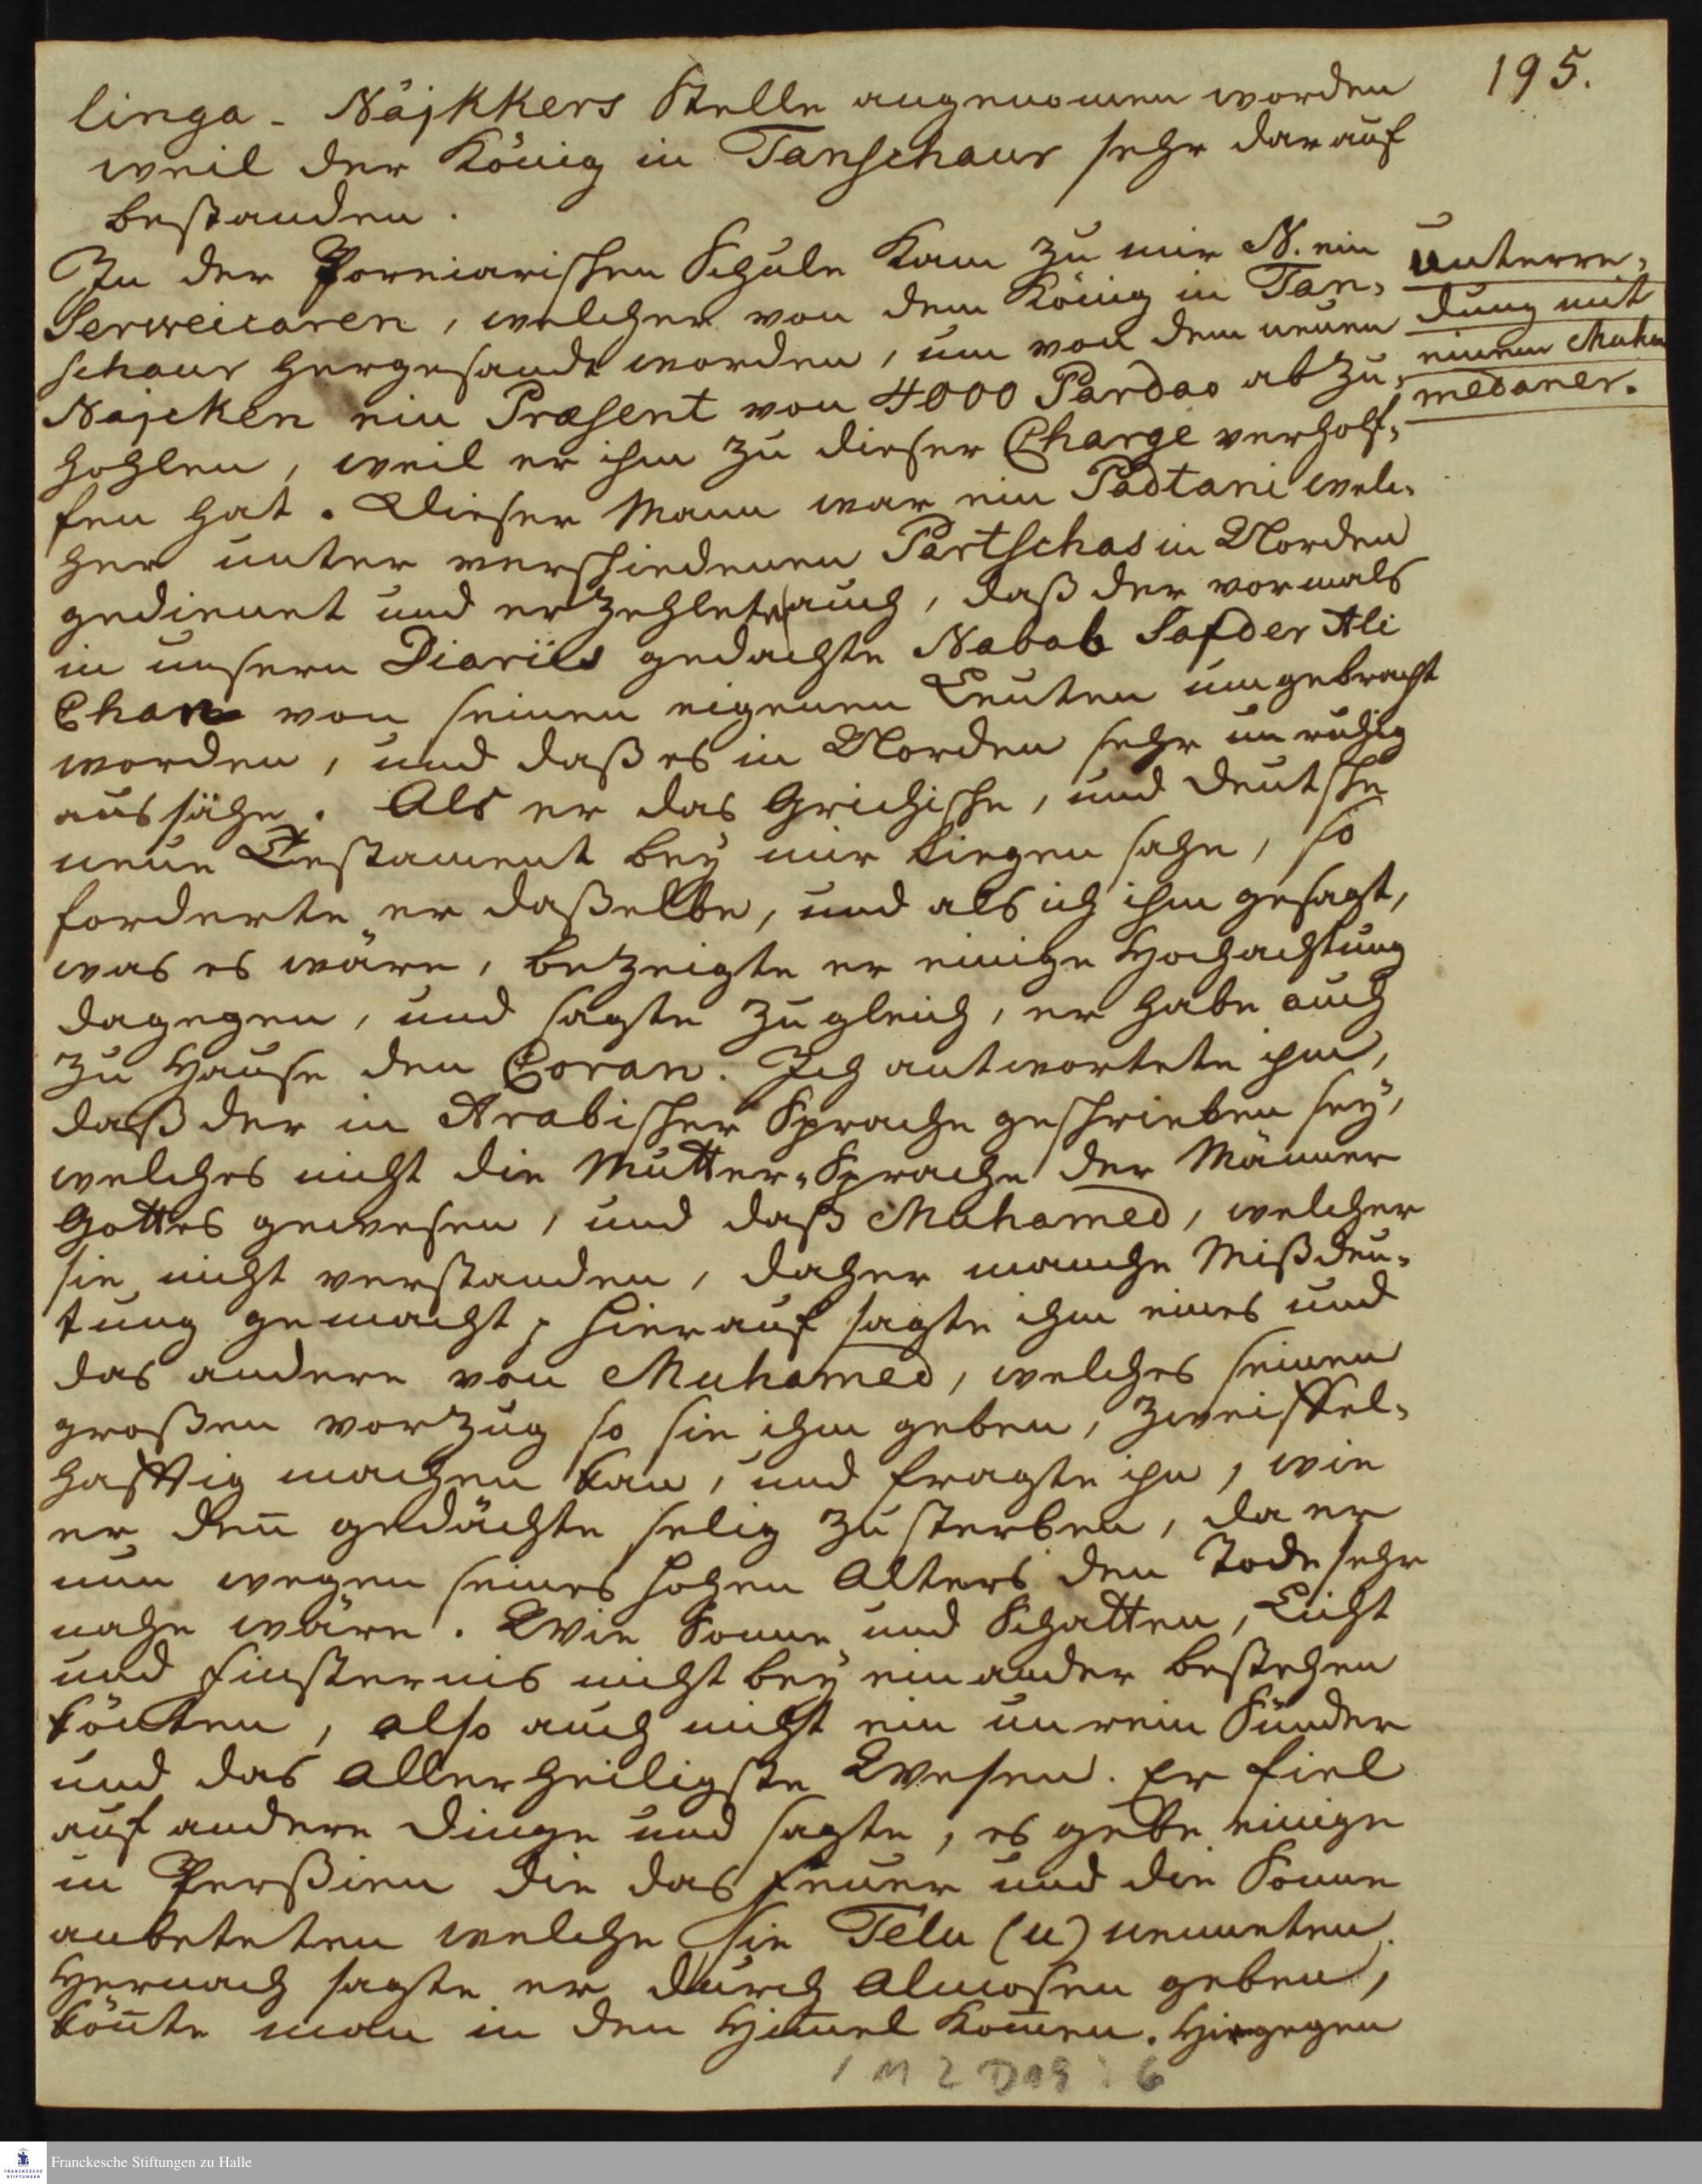 195.
linga-Näjkkers Stelle angenomen worden
weil der König in Tanschaur sehr darauf
bestanden.
In der Poreiarischen Schule kam zu mir N. ein
Serweicaren, welcher von dem König in Tan-
schaur hergesandt worden, um von dem neuen
Najcken ein Præsent von 4000 Pardao abzu-
hohlen, weil er ihm zu dieser Charge verholf-
fen hat. Dieser Mann war ein Padtani wel-
cher unter verschiedenen Partschas in Norden
gedienet und erzehlete auch, daß der vormals
in unsern Diariis gedachte Nabab Safder Ali
Chan von seinen eigenen Leuten umgebracht
worden, und daß es in Norden sehr unruhig
aussähe. Als er das Grichische, und Deutsche
neue Testament bey mir liegen sahe, so
forderte er daßelbe, und als ich ihm gesagt,
was es wäre, bezeigte er einige Hochachtung
dagegen, und sagte zugleich, er habe auch
zu Hause den Coran. Ich antwortete ihm,
daß der in Arabischer Sprache geschrieben sey,
welches nicht die Mutter-Sprache der Männer
Gottes gewesen, und daß Muhamed, welcher
sie nicht verstanden, daher manche Mißdeu-
tung gemacht; hierauf sagte ihm eines und
das andere von Muhamed, welches seinen
großen vorzug so sie ihm geben, zweiffel-
hafftig machen kan, und fragte ihn, wie
er deñ gedächte selig zu sterben, da er
nun wegen seines hohen Alters dem Tode sehr
nahe wäre. Wie Sonne und Schatten, Licht
und Finsternis nicht bey einander bestehen
könten, also auch nicht ein unrein Sünder
und das allerheiligste Wesen. Er fiel
auf andere Dinge und sagte, es gebe einige
in Perßien die das Feuer und die Sonne
anbeteten welche sie Telu (u) nenneten.
Hernach sagte er durch Almosen geben,
köñte man in den Himel komen. Hiegegen
unterre-
dung mit
einem Muha
medaner.
1 M 2 D 19 : 6
Franckesche Stiftungen zu Halle
FRANCKESCHE
STIFTUNGEN